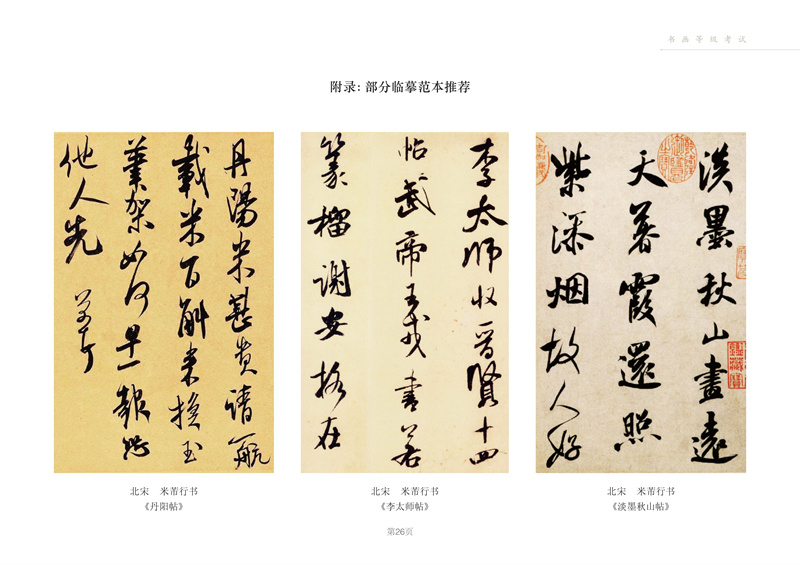 书画等级考试
附录：部分临摹范本推荐
丹陽米甚貴請一航
載米百斛来換玉
筆架如何早一報恐
他人先
芾
李太師收晉賢十四
帖武帝王戎書若
篆籀謝安格在
淡墨秋山畫遠
天暮霞還照
紫添烟故人好
北宋 米芾行书
《丹阳帖》
北宋 米芾行书
《李太师帖》
北宋 米芾行书
《淡墨秋山帖》
第26页